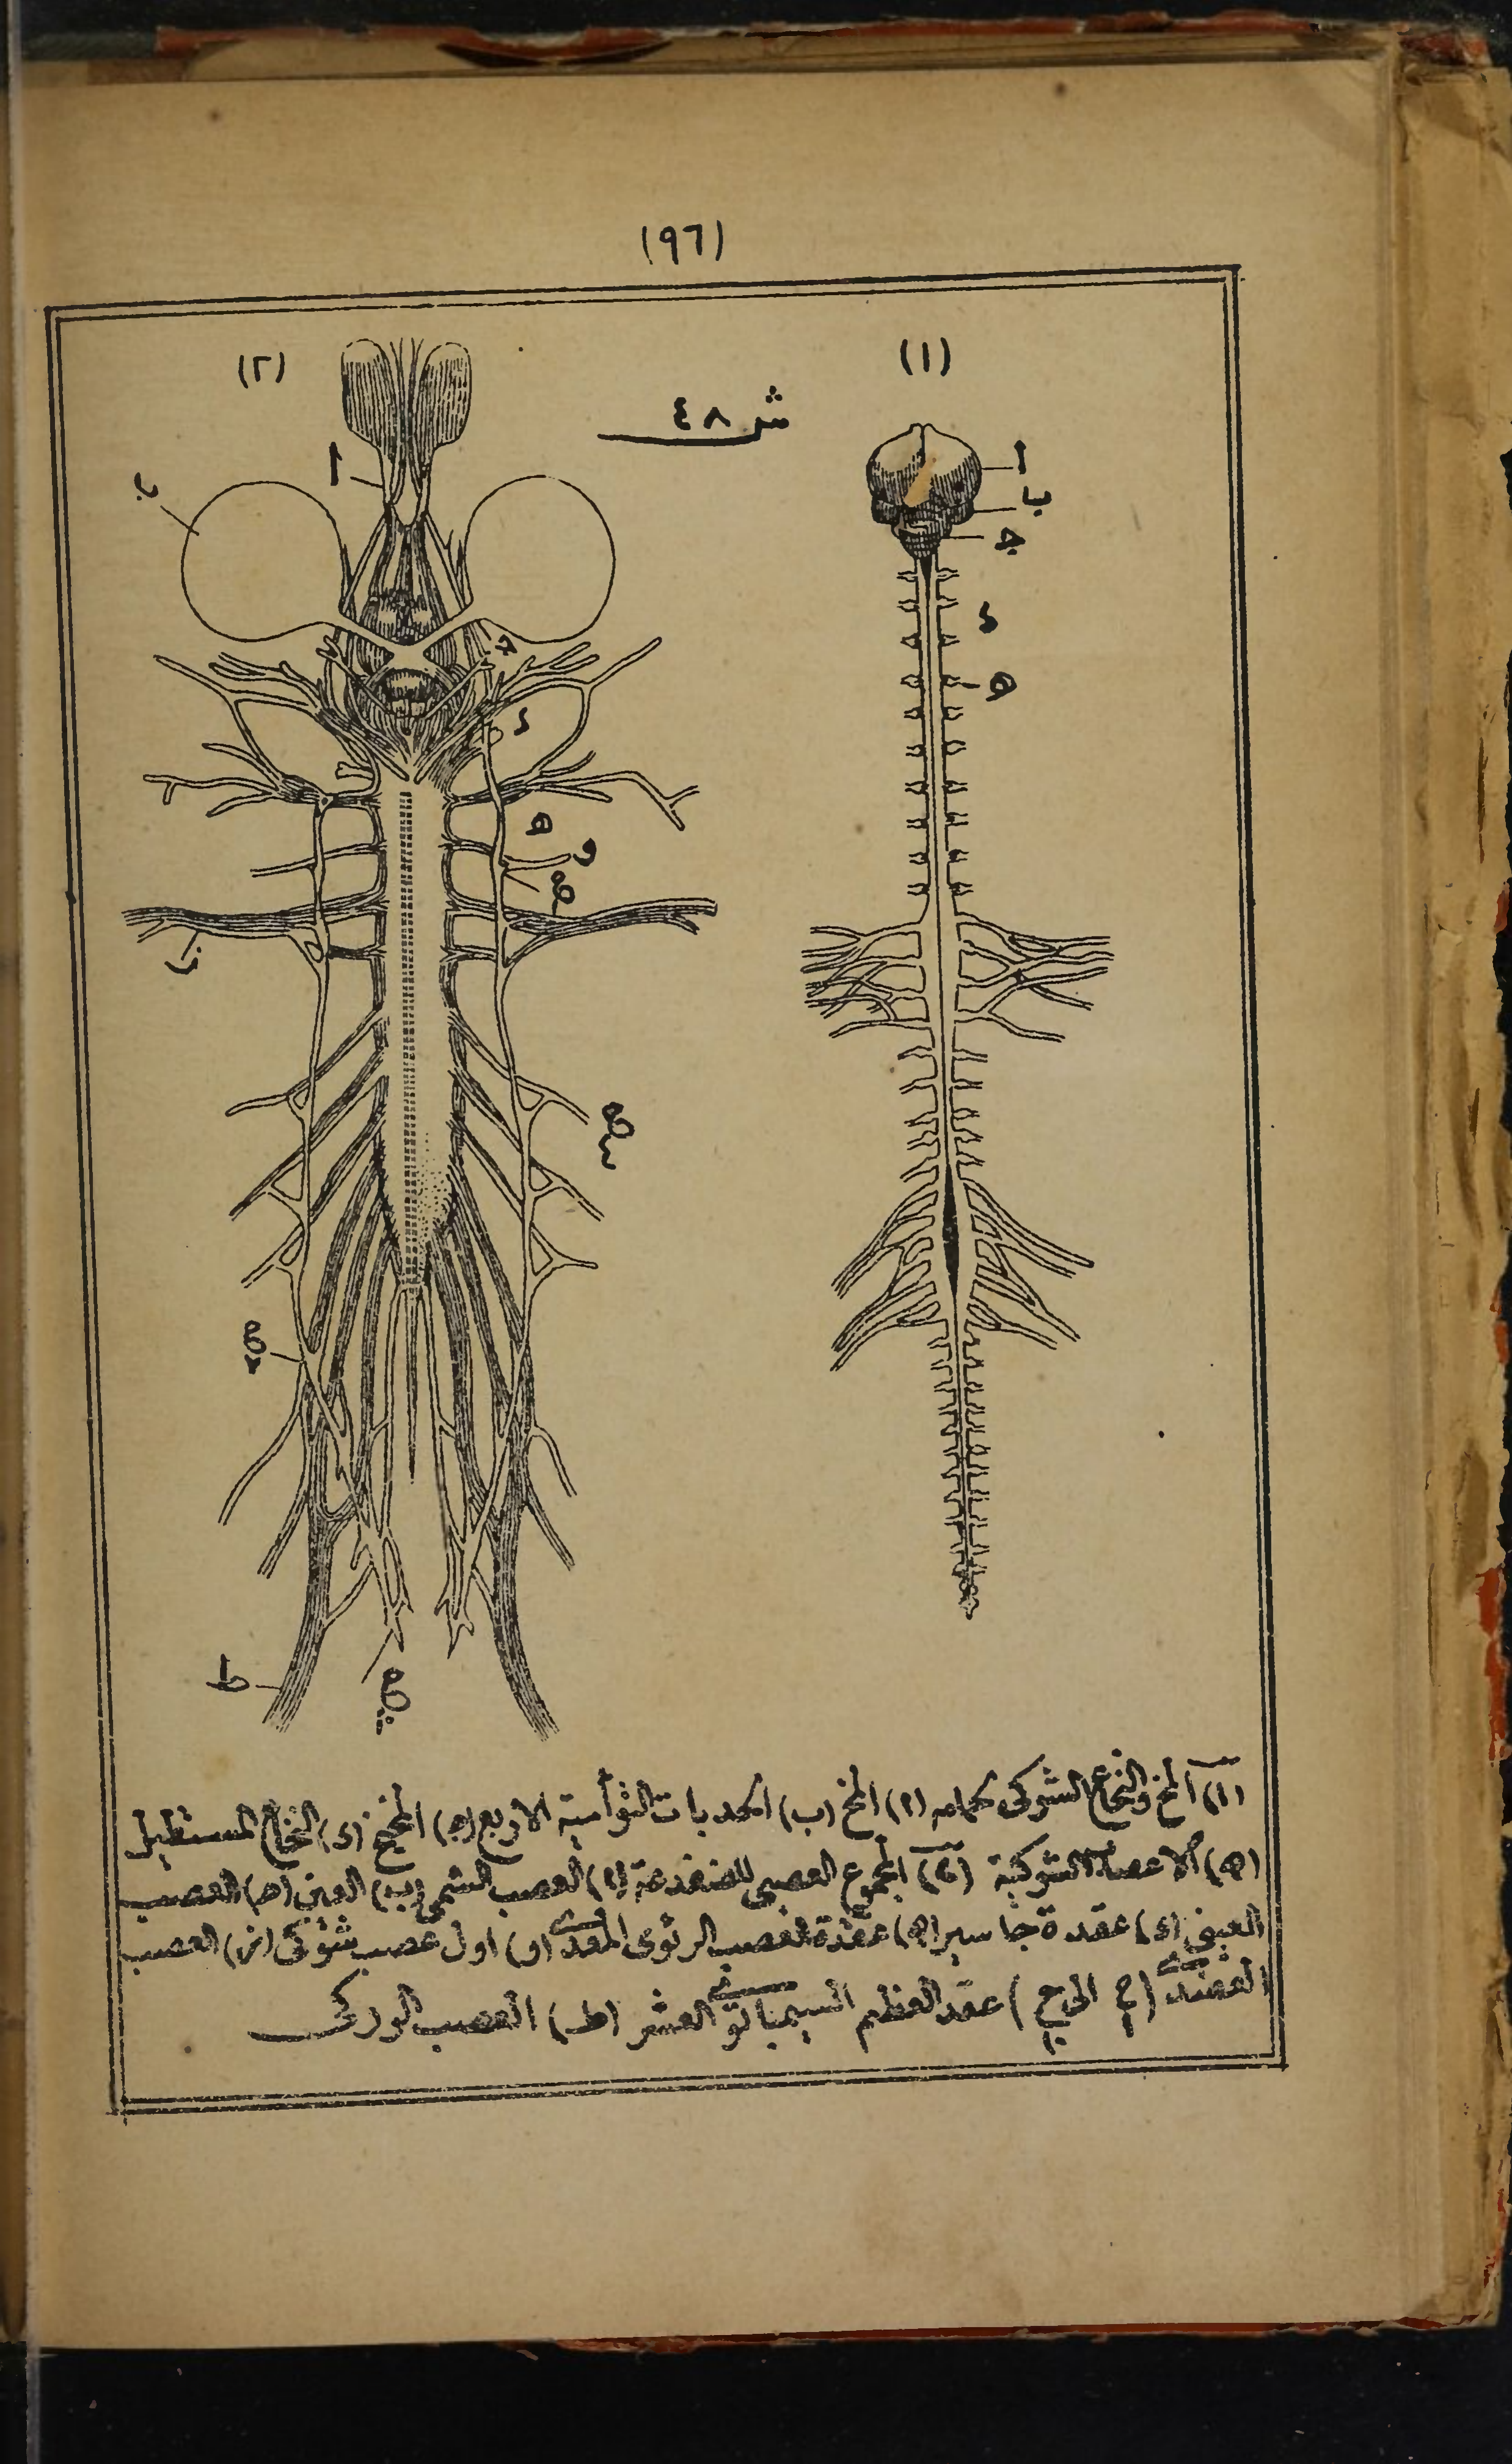 (٩٦)
(١)
(٢)
ش ٤٨
ا
ب
ج
د
ه
ا
ب
ج
د
ه
و
ح
ز
ح
ح
ط
ح
(١) المخ والنخاع الشوكى لحمامه (ا) المخ (ب) الحدبات التوأمية الاربع (ج) المخيخ (د) النخاع المستطيل
(ه) الاعصاب الشوكية (٢) المجموع العصبى للضفدعة (ا) العصب الشمى (ب) العين (ج) العصب
العينى (د) عقدة جاسير (ه) عقدة العصب الرئوى المعدى (و) اول عصب شوكى (ز) العصب
العضدى (ح الى ح) عقد العظيم السيمباتوى العشر (ط) العصب الوركى